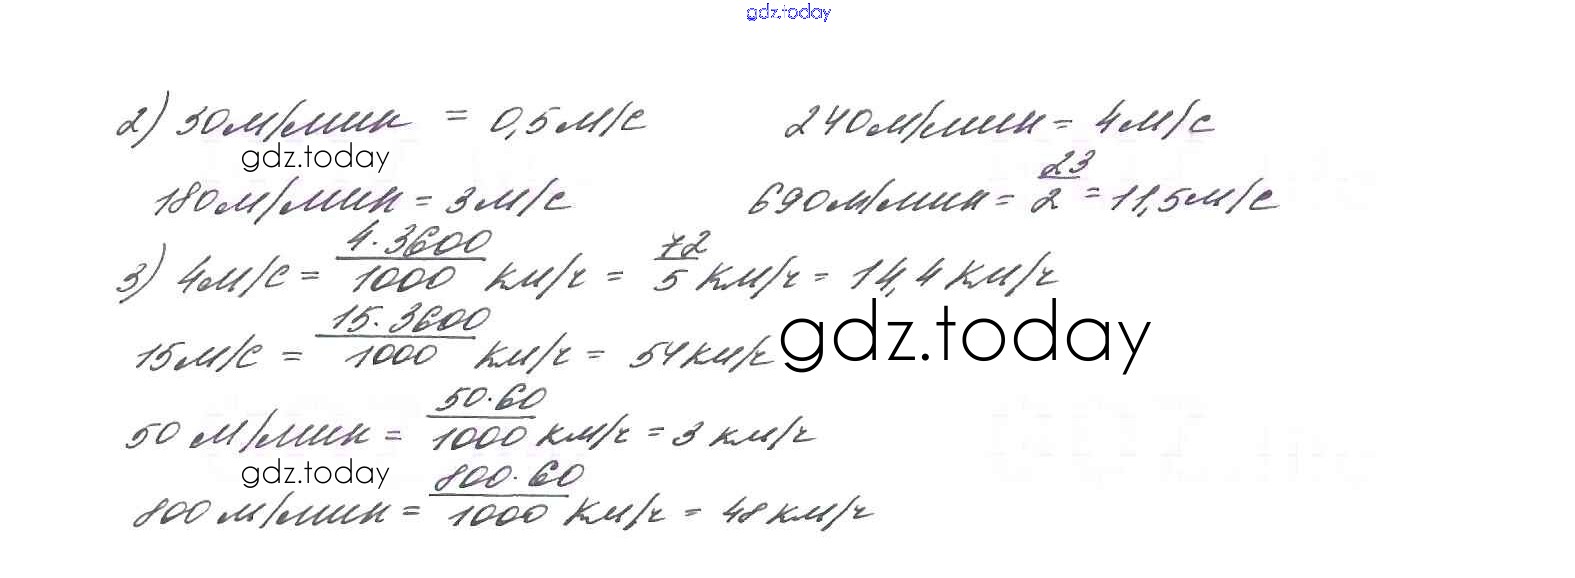 gdz.today
2) 30м/мин = 0,5м/с 240м/мин = 4м/с
gdz.today
180м/мин = 3м/с 690м/мин = 23/2 = 11,5м/с
3) 4м/с = 4·3600/1000 км/ч = 72/5 км/ч = 14,4 км/ч
15м/с = 15·3600/1000 км/ч = 54км/ч gdz.today
50 м/мин = 50·60/1000 км/ч = 3 км/ч
gdz.today
800 м/мин = 800·60/1000 км/ч = 48 км/ч